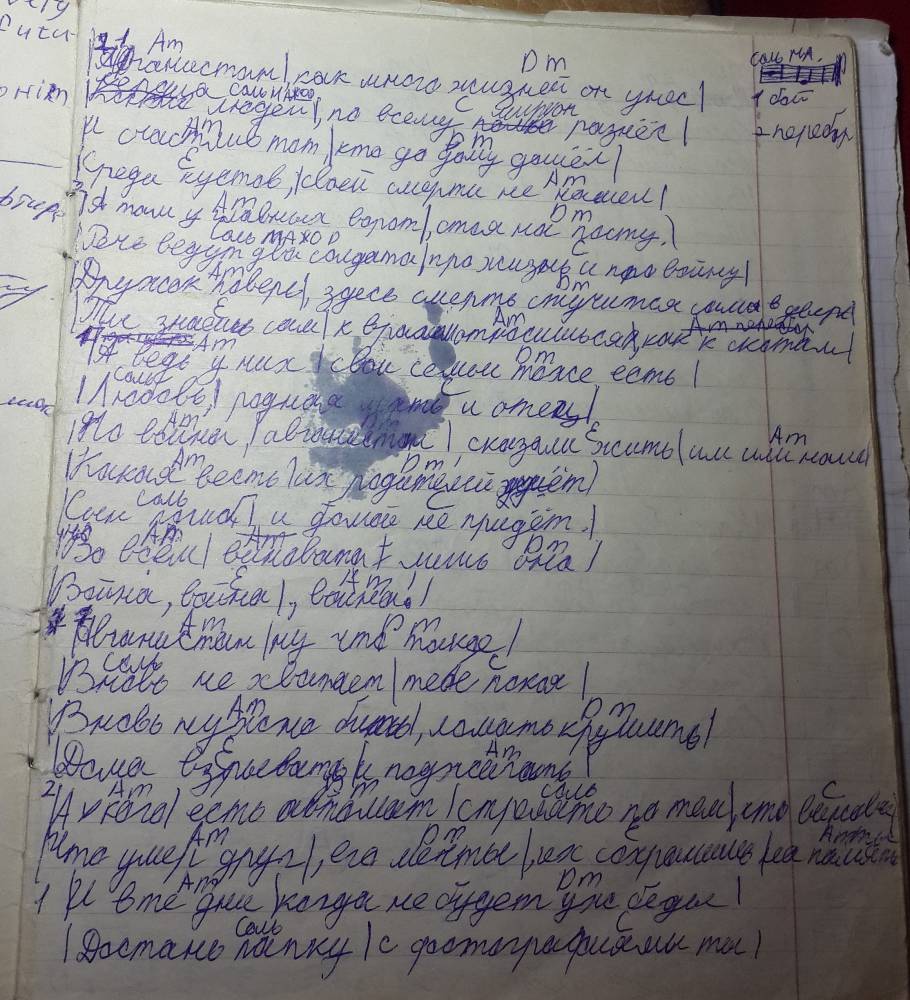 2 1 Am Dm соль м.а.
Авганистан | как много жизней он унес |
соль C
людей |, по всему разнёс | 1 бой
Am Dm 2 перебор
И счастлив тот, | кто до дому дошёл |
E Am
Среди кустов, | своей смерти не нашел |
2 Am Dm
А там у главных ворот |, стоя на посту. |
соль C
Речь ведут два солдата | про жизнь и про войну |
Am Dm
Дружок поверь |, здесь смерть стучится сама в дверь |
E Am Am перебор
Ты знаешь сам | к врагам относишься |, как к скотам |
Am Dm
| А ведь у них | свои семьи тоже есть |
соль C
| Любовь, | родная мать и отец |
Am Dm E Am
| Но война, | авганистан |, сказали жить | им или нам |
Am Dm
| Какая весть | их родителей ждёт |
соль C
Сын погиб, | и домой не придёт. |
Am Am Dm
Во всём | виновата | лишь она |
E Am
| Война, война |, война! |
Am Dm
Авганистан | ну что такое |
соль C
Вновь не хватает | тебе покоя |
Am Dm
| Вновь нужно бить |, ломать крушить |
E Am
| Дома взрывать | и поджигать |
2 Am соль C
| А у кого | есть автомат | стрелять по тем |, кто виноват
Am Dm E Am
Что умер друг |, его мечты |, их сохранишь | на память
Am Dm
1 | И в те дни | когда не будет уж беды |
соль
| Достань папку | с фотографиями ты |